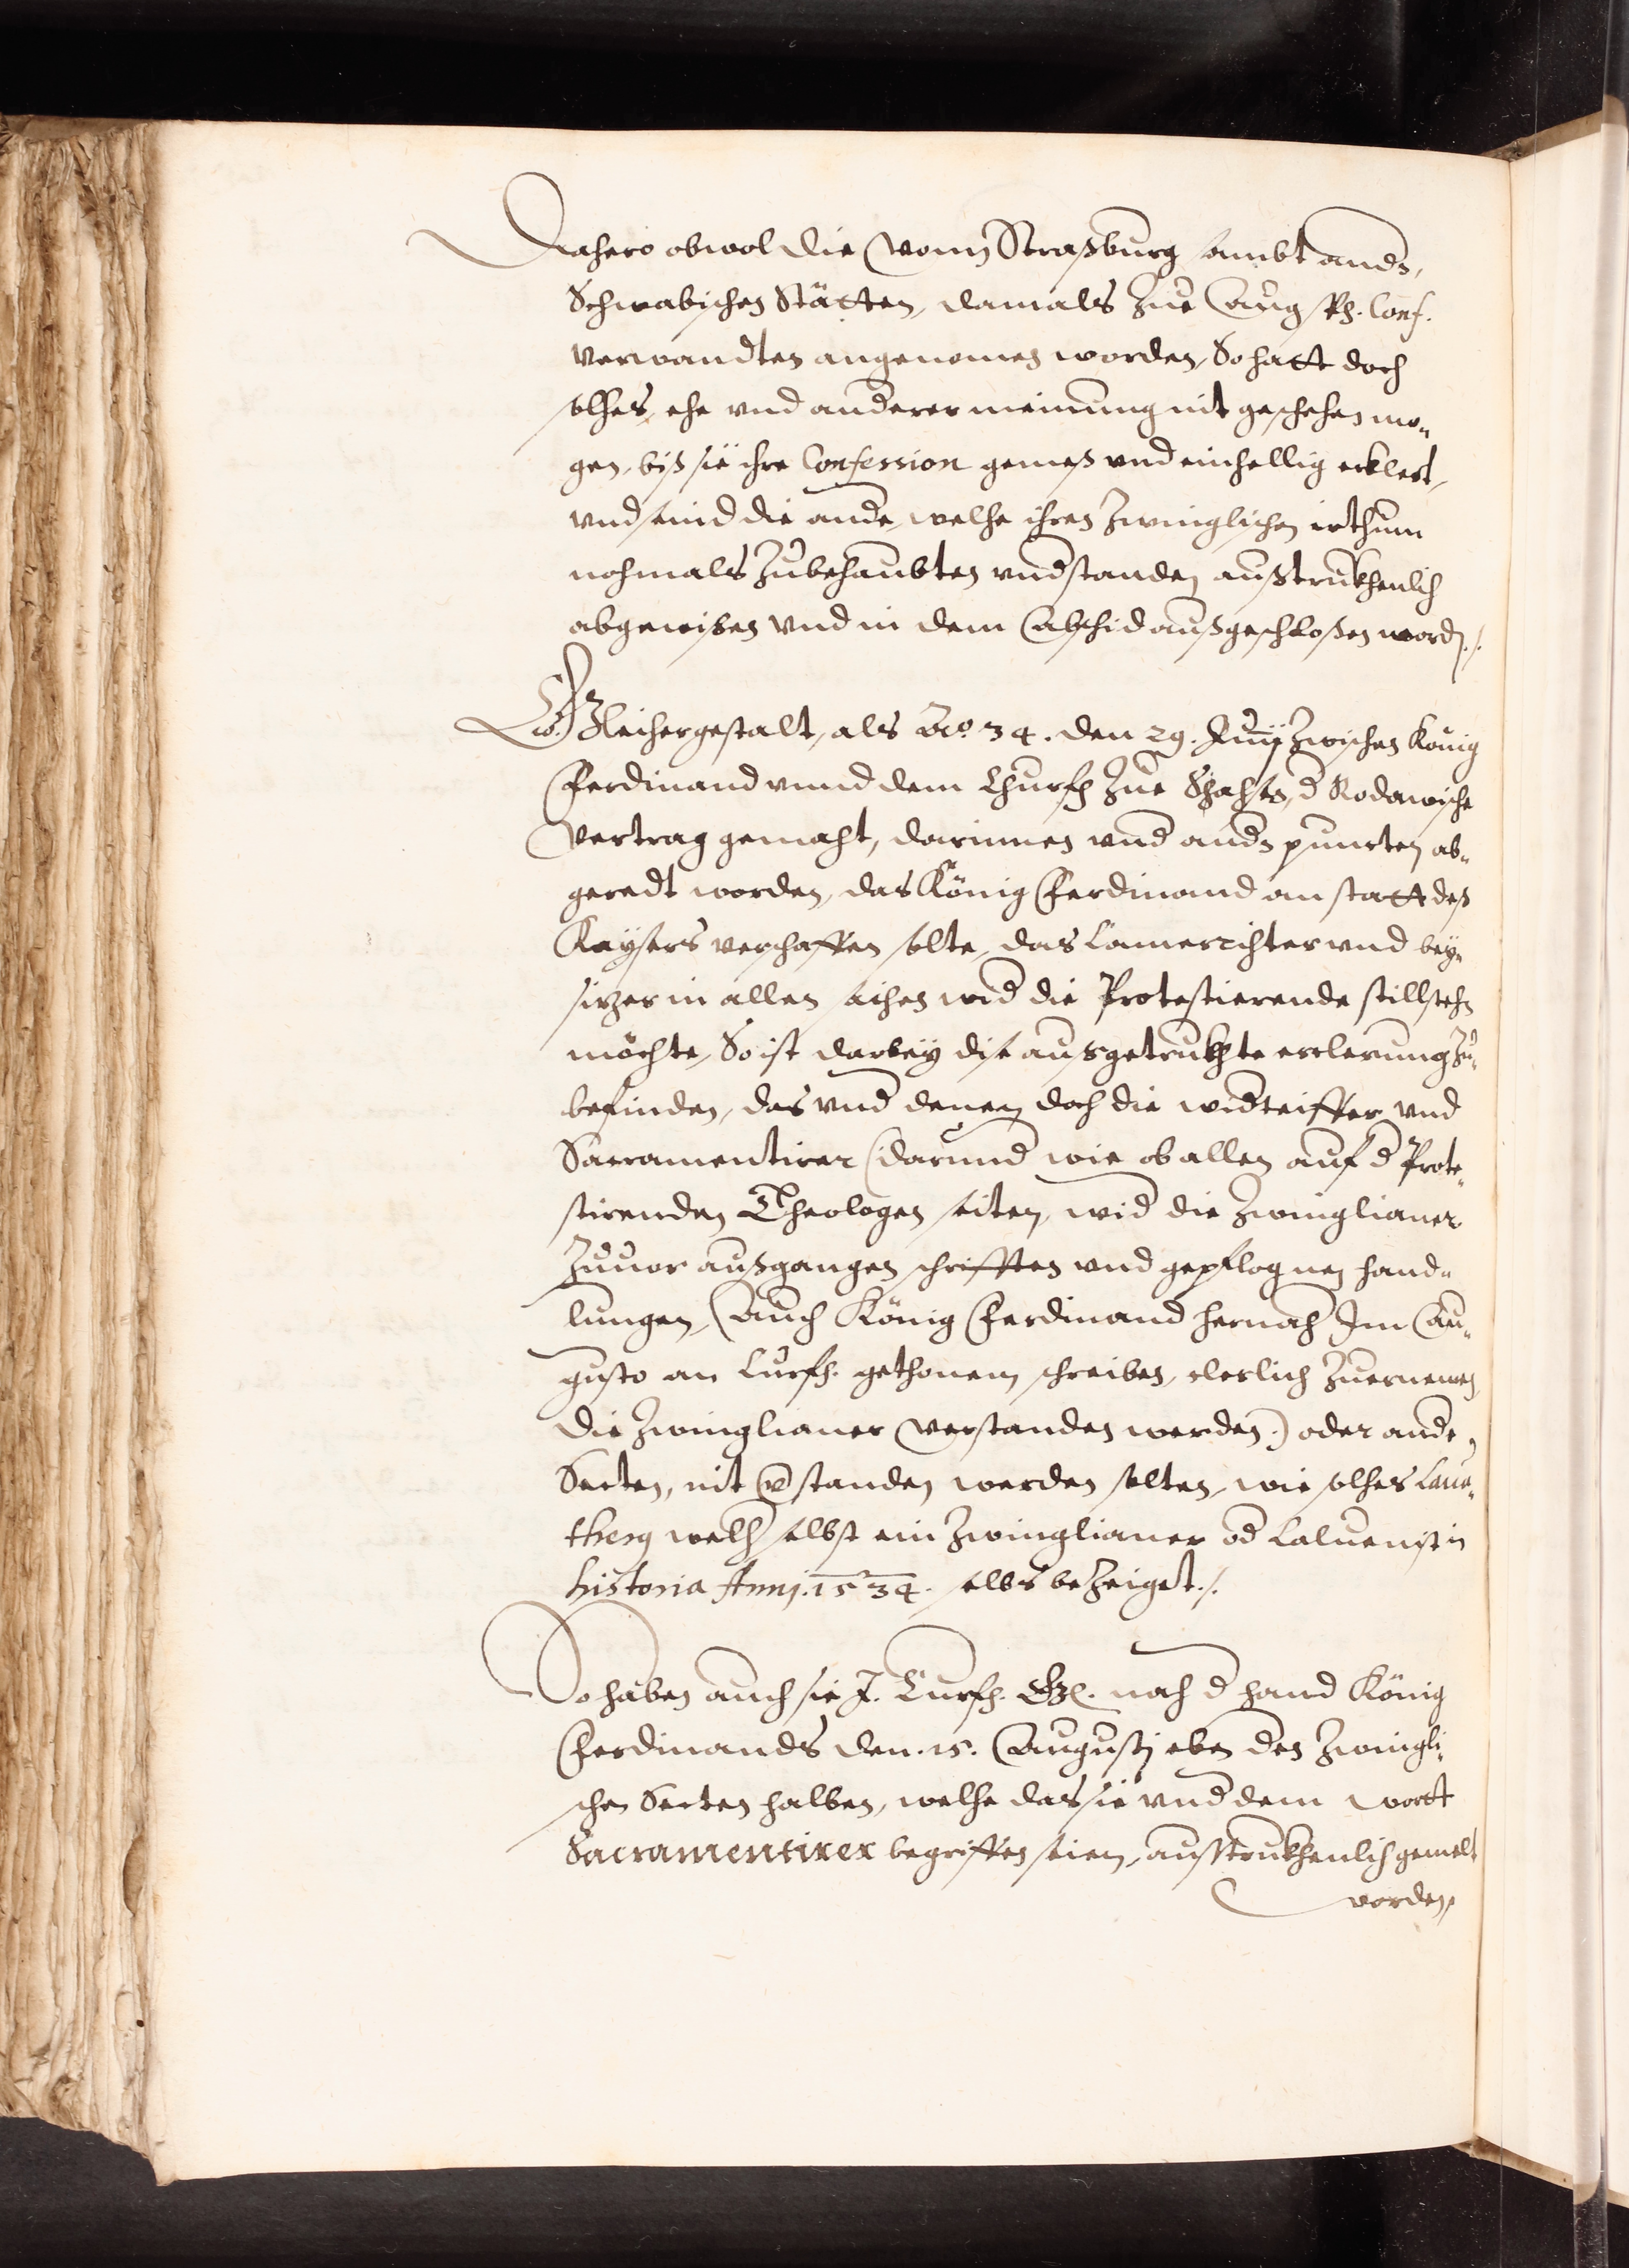 Dahero obwol die vonn Straßburg sambt andn,
Schwabischen Stätten, damals zue Augsp: Conf.
verwandten angenomen worden, So hatt doch
solhes, ehe vnd anderer meinung nit geschehen mo„
gen, biß sie ihre Confession gemeß vnd einhellig erklert,
vnd seind die ande, welhe ihren Zwinglischen irthum
nohmals zubehaubten vndstanden außtrukhenlich
abgewisen vnd in dem Abschid außgeschloßen word./.
Gleihergestalt, als Ao. 34. den 29. Junij zwischen König
Ferdinand vnnd dem Churfh zue Sachsn, d Kodawische
Vertrag gemaht, darinnen vnd andn puncten ab„
geredt worden, das König Ferdinand an statt deß
Kaysers verschaffen solte, das Camerrihter vnd bey„
sizer in allen sachen wid die Protestierende stillstehn
möchte, So ist darbey dise ausgetrukhte erclerung zu„
befinden, das vnd denen doch die widteiffer vnd
Sacramentirer (darund wie ob allen auf d Prote„
stirenden Theologen seiten, wid die Zwinglianer
zuuor außgangen schrifften vnd gepflognen hand„
lungen, Auch König Ferdinand hernach Im Au„
gusto an Curfh. gethonem schreiben, clerlich zuernemen
die Zwinglianer verstanden werden) oder ande
Secten, nit vstanden werden solten, wie solhes Laua„
therg welh selbst ein Zwinglianer od Caluenist in
historia Annj. 1534. selbs bezeiget./.
So haben auch sie J. Curfh. Gn. nah d hand König
Ferdinands den. 15. Augustj eben den Zwingli„
schen Secten halben, welhe das sie vnd dem wortt
Sacramentirer begriffen seien, außtrukhenlich gemelt
worden,